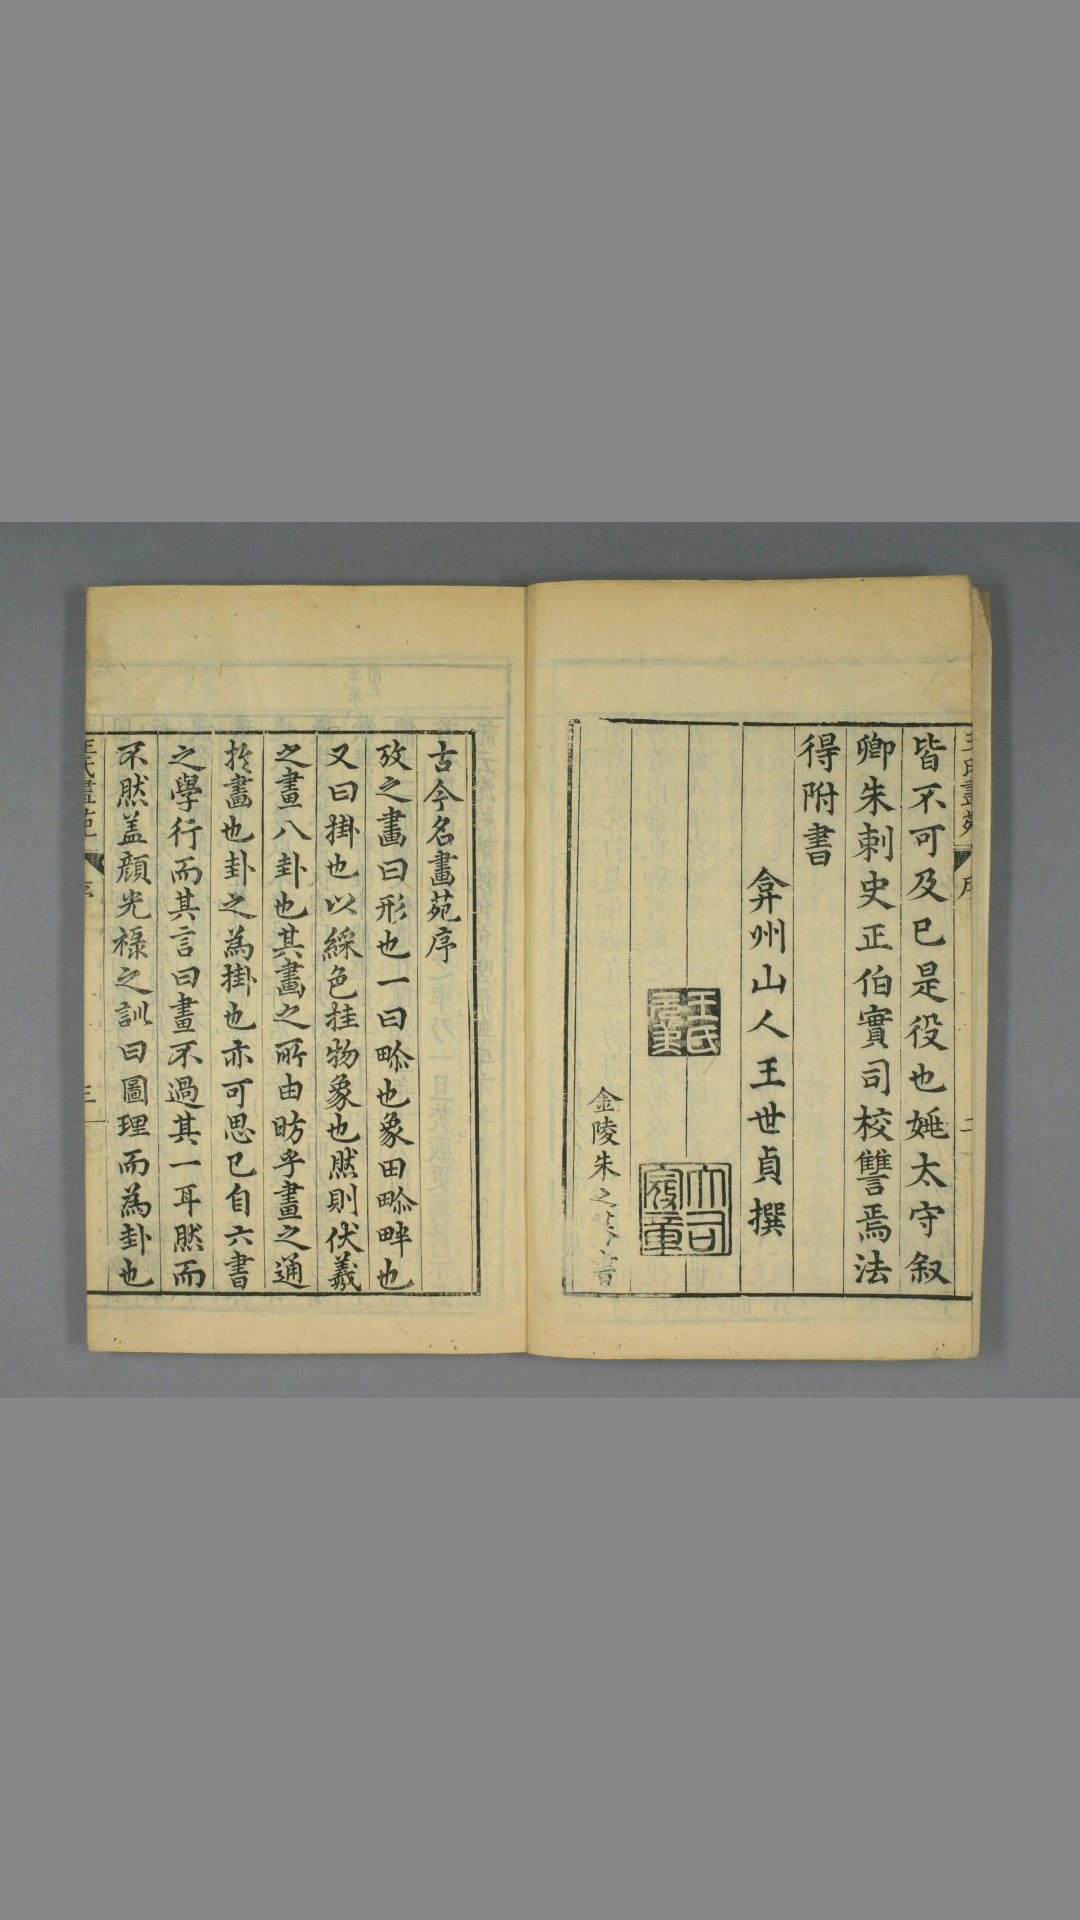 皆不可及已是役也㛂太守叙
卿朱刺史正伯實司校讐焉法
得附書
弇州山人王世貞撰
王氏
大司
金陵朱之
古今名畫苑序
攷之畫曰形也一曰畍也象田畍畔也
又曰掛也以綵色挂物象也然則伏羲
之畫八卦也其畫之所由昉乎畫之通
於畫也卦之為掛也亦可思已自六書
之學行而其言曰畫不過其一耳然而
不然盖顔光禄之訓曰圖理而為卦也
王氏畫苑
序
三